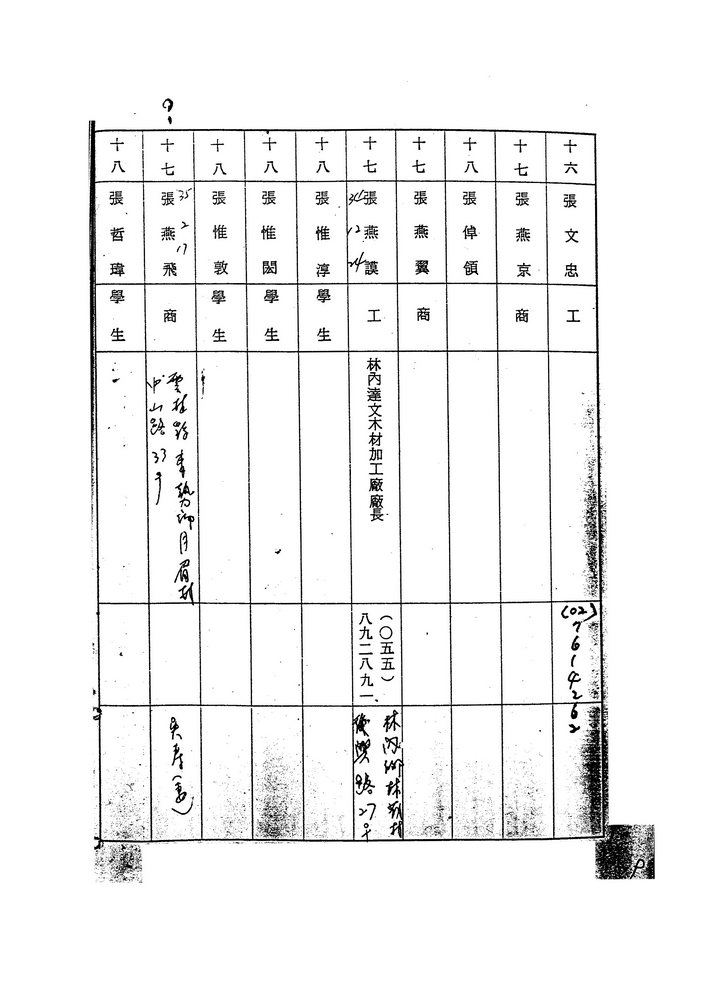 十六
張文忠
工
(02)
7614262
十七
張燕京
商
十八
張倬領
十七
張燕翼
商
十七
張燕謨
34
12
24
工
林內達文木材加工廠廠長
(○五五)
八九二八九一
林內鄉林村
路27号
十八
張惟淳
學生
十八
張惟閎
學生
十八
張惟敦
學生
?
十七
張燕飛
35
2
17
商
雲林縣東勢鄉月眉村
中山路33号
十八
張哲瑋
學生